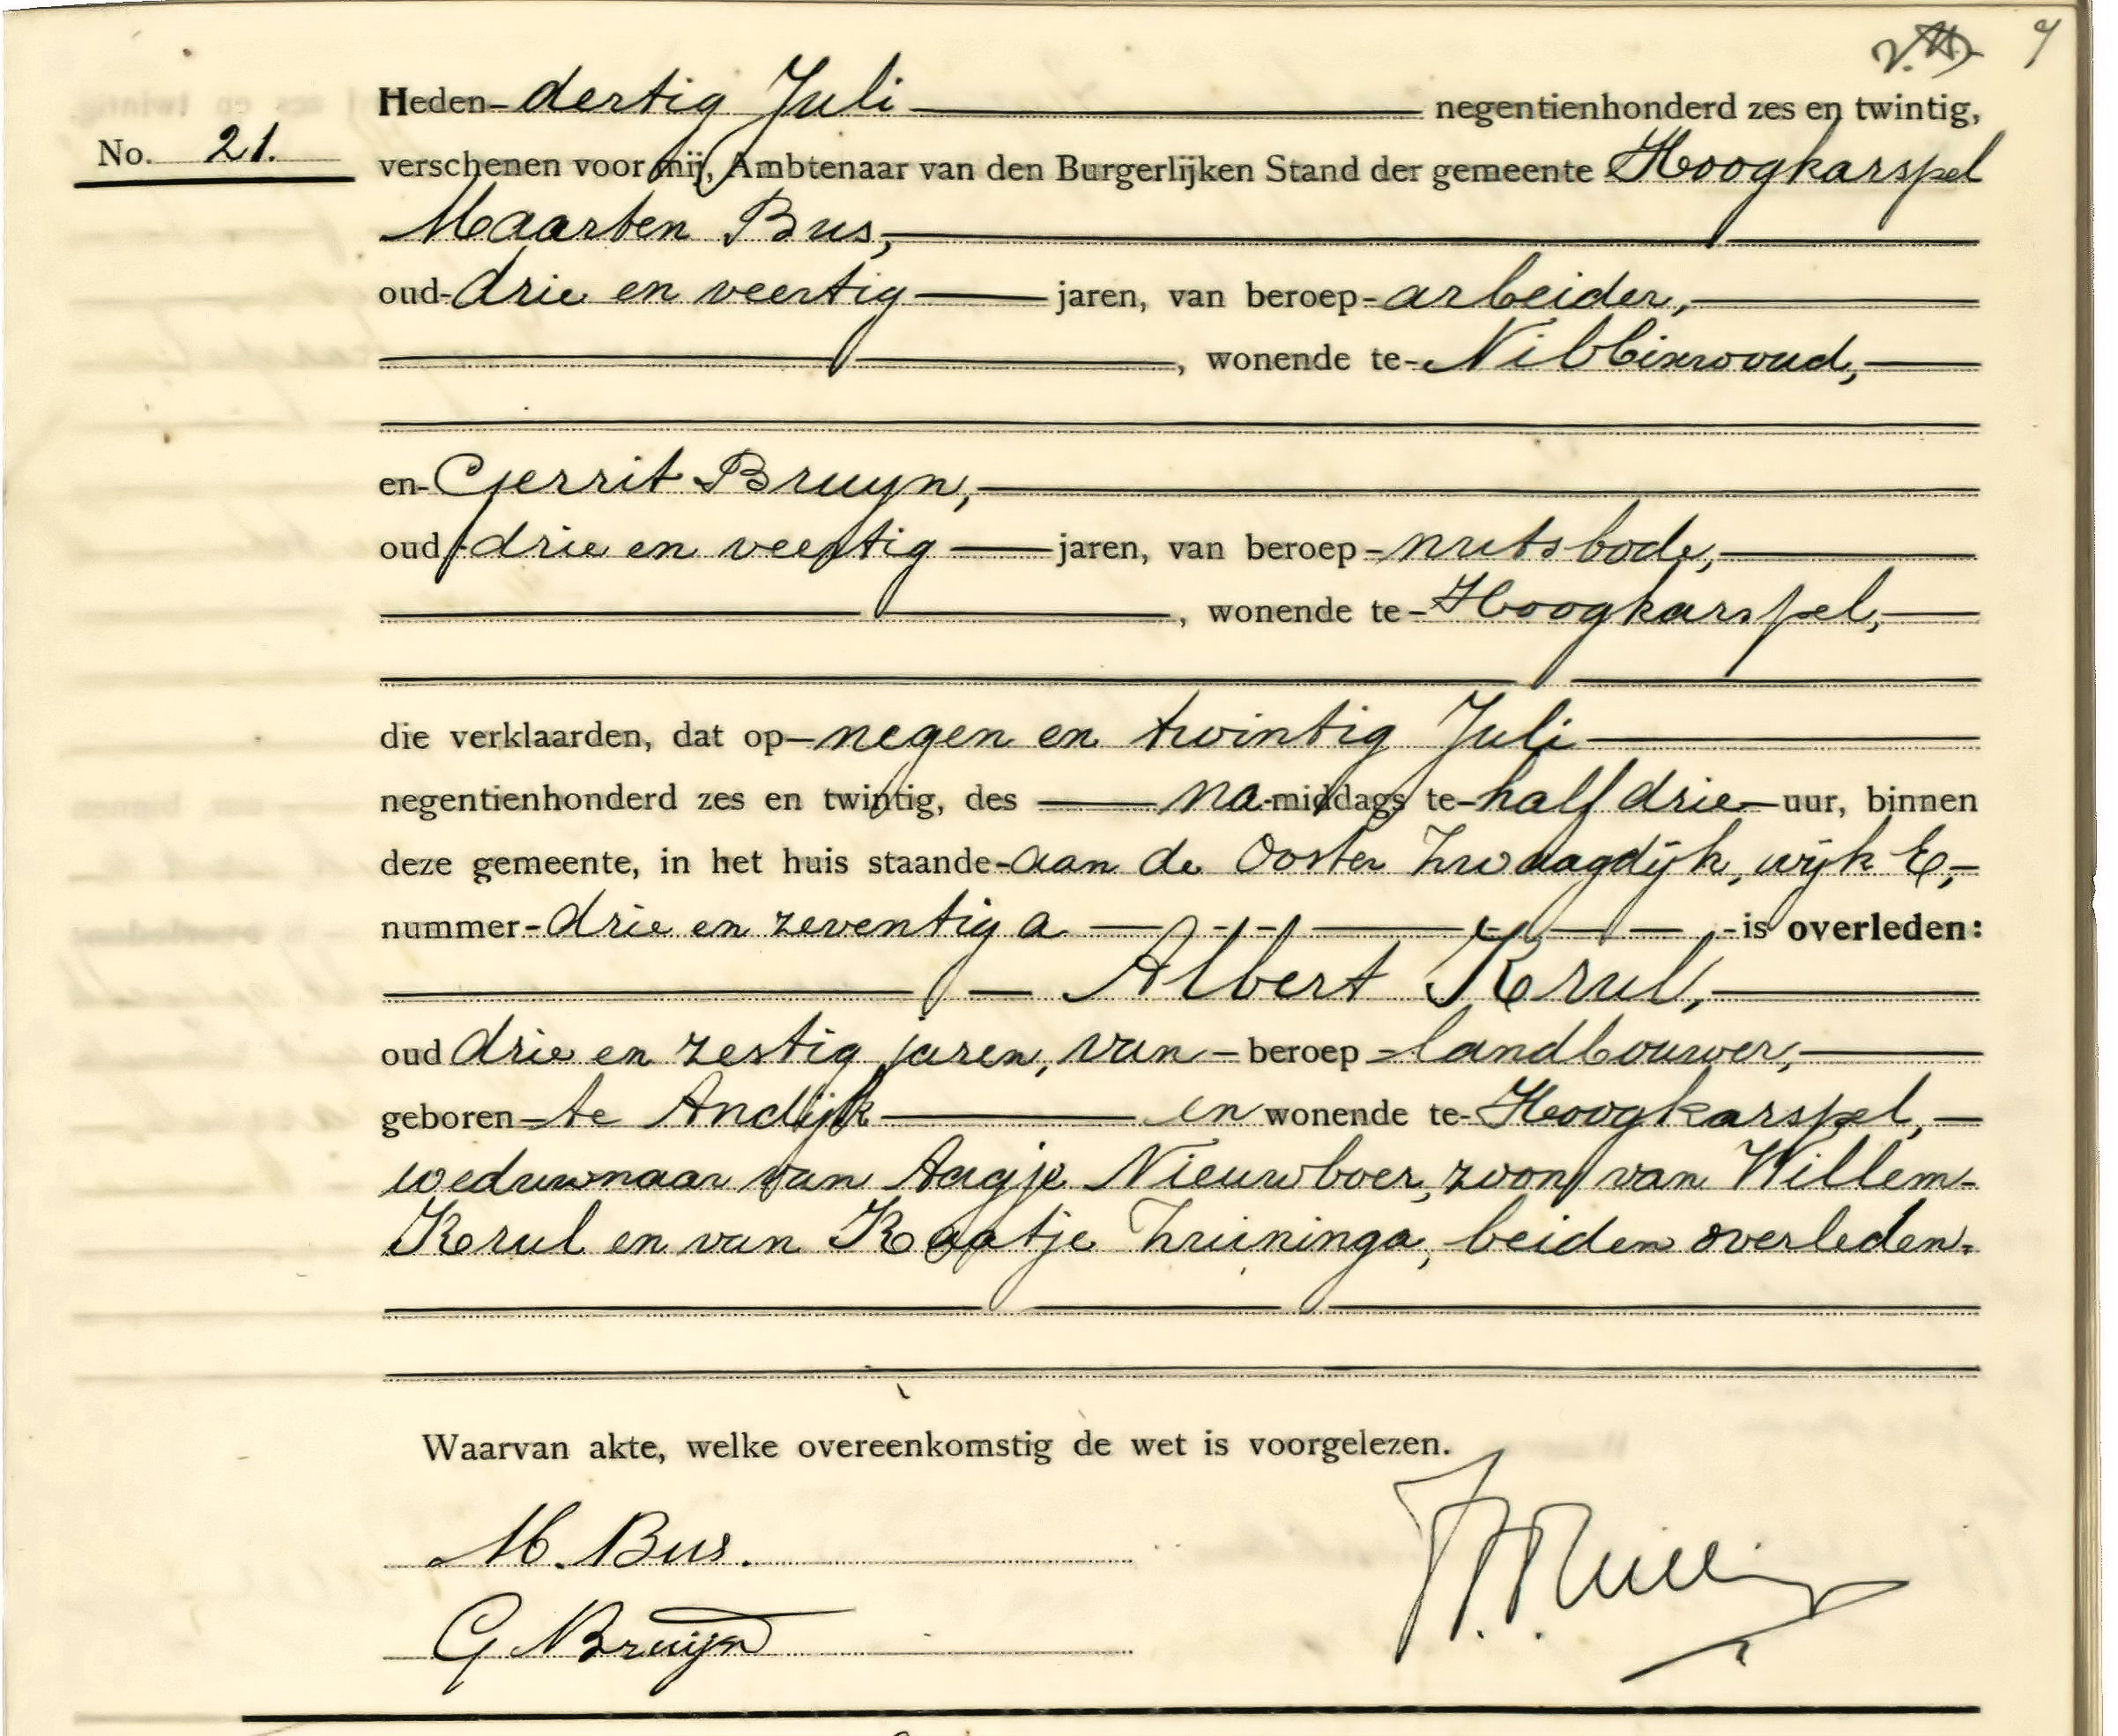 9
Heden dertig Juli negentienhonderd zes en twintig,
No. 21.
verschenen voor mij, Ambtenaar van den Burgerlijken Stand der gemeente Hoogkarspel
Maarten Bus,
oud drie en veertig jaren, van beroep arbeider,
, wonende te Nibbixwoud,
en Gerrit Bruyn,
oud drie en veertig jaren, van beroep nutsbode,
, wonende te Hoogkarspel,
die verklaarden, dat op negen en twintig Juli
negentienhonderd zes en twintig, des na-middags te half drie uur, binnen
deze gemeente, in het huis staande aan de Ooster Zwaagdijk, wijk E,
nummer drie en zeventig a is overleden:
Albert Krul,
oud drie en zestig jaren, van beroep landbouwer,
geboren te Andijk en wonende te Hoogkarspel,
weduwnaar van Aagje Nieuwboer, zoon van Willem
Krul en van Kaatje Zruininga, beiden overleden.
Waarvan akte, welke overeenkomstig de wet is voorgelezen.
M. Bus.
G Bruijn